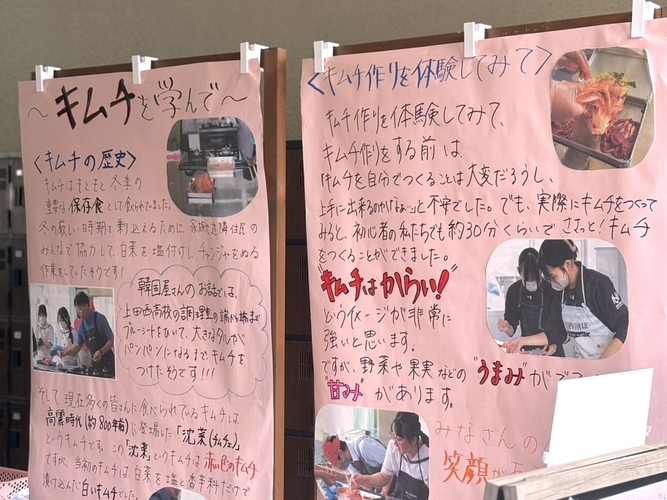 ～キムチを学んで～
<キムチの歴史>
キムチはもともと冬季の
重要な保存食として食べられてました。
冬の厳しい時期を乗り込えるために家族や近隣住居の
みんなで協力して、白菜を塩付けし、チャンジャをぬる
作業をしていたそうです!
韓国屋さんのお話では、
上田西高校の調理室の端から端まで
ブルーシートをひいて、大きなタルが
パンパンになるまでキムチを
つけたそうです!!!
そして、現在多くの皆さんに食べられているキムチは
高麗時代(約800年前)に登場した「沈菜(チムチェ)」
というキムチです。この「沈菜」というキムチは赤い色のキムチ
ですが、当初のキムチは、白菜を塩と香辛料だけで
漬け込んだ白いキムチでした。
<キムチ作りを体験してみて>
キムチ作りを体験してみて、
キムチ作りをする前は、
「キムチを自分でつくることは大変だろうし、
上手に出来るのかなぁ…」と不安でした。でも、実際にキムチをつくって
みると、初心者の私たちでも約30分くらいでささっと!キムチ
をつくることができました。
"キムチはからい!"
というイメージが非常に
強いと思います。
ですが、野菜や果実などの"うまみ"がで
"甘み"があります。
みなさんの
笑顔が